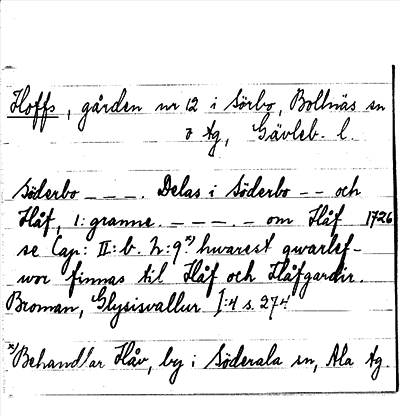 Hoffs, gården nr 12 i Sörbo, Bollnäs sn
o tg, Gävleb. l.
Söderbo _ _ _. Delas i Söderbo _ _ och
Håf, 1: granne. _ _ _. _ om Håf 1726
se Cap: II: b. N: 9 x) hwarest qwarlef-
wor finnas til Håf och Håfgardir.
Broman, Glysisvallur I:4 s. 274
x) Behandlar Håv, by i Söderala sn, Ala tg.